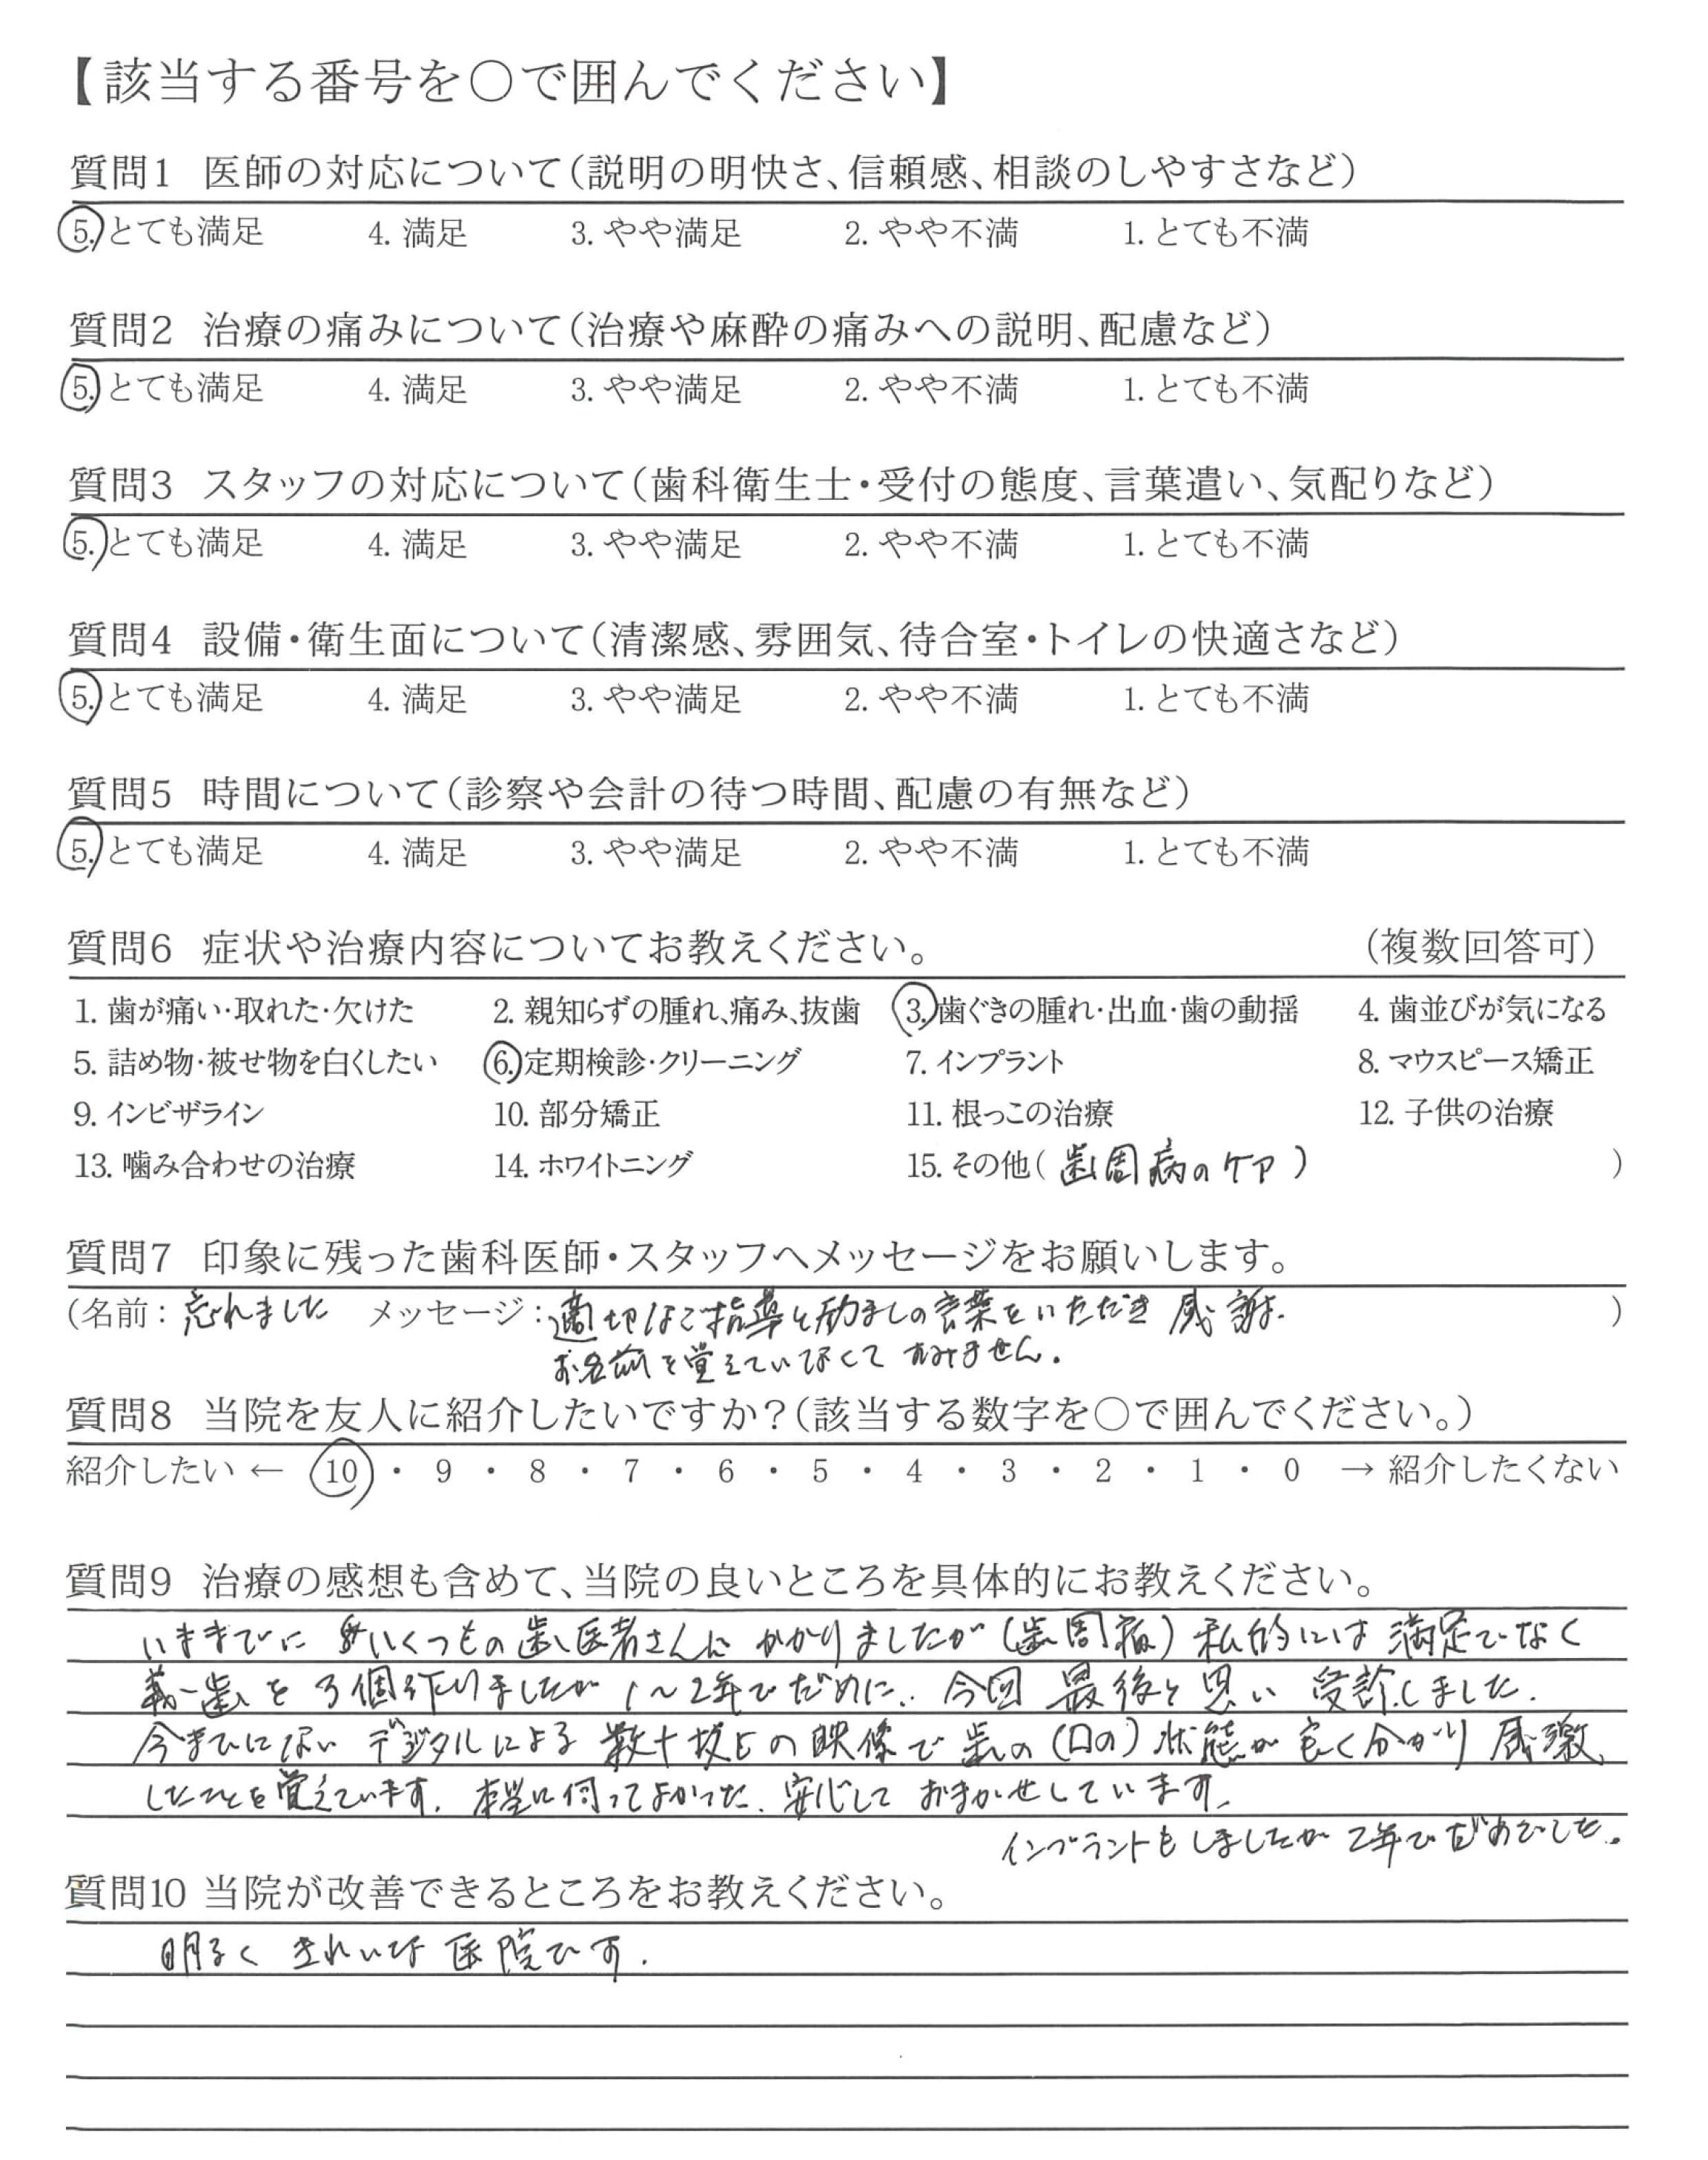 【該当する番号を○で囲んでください】
質問1 医師の対応について(説明の明快さ、信頼感、相談のしやすさなど)
5. とても満足 4. 満足 3. やや満足 2. やや不満 1. とても不満
質問2 治療の痛みについて(治療や麻酔の痛みへの説明、配慮など)
5. とても満足 4. 満足 3. やや満足 2. やや不満 1. とても不満
質問3 スタッフの対応について(歯科衛生士・受付の態度、言葉遣い、気配りなど)
5. とても満足 4. 満足 3. やや満足 2. やや不満 1. とても不満
質問4 設備・衛生面について(清潔感、雰囲気、待合室・トイレの快適さなど)
5. とても満足 4. 満足 3. やや満足 2. やや不満 1. とても不満
質問5 時間について(診察や会計の待つ時間、配慮の有無など)
5. とても満足 4. 満足 3. やや満足 2. やや不満 1. とても不満
質問6 症状や治療内容についてお教えください。 (複数回答可)
1. 歯が痛い・取れた・欠けた 2. 親知らずの腫れ、痛み、抜歯 3. 歯ぐきの腫れ・出血・歯の動揺 4. 歯並びが気になる
5. 詰め物・被せ物を白くしたい 6. 定期検診・クリーニング 7. インプラント 8. マウスピース矯正
9. インビザライン 10. 部分矯正 11. 根っこの治療 12. 子供の治療
13. 噛み合わせの治療 14. ホワイトニング 15. その他( 歯周病のケア ) )
質問7 印象に残った歯科医師・スタッフへメッセージをお願いします。
(名前: 忘れました メッセージ: 適切なご指導と励ましの言葉をいただき 感謝. )
お名前を覚えていなくて すみません.
質問8 当院を友人に紹介したいですか?(該当する数字を○で囲んでください。)
紹介したい ← 10 ・ 9 ・ 8 ・ 7 ・ 6 ・ 5 ・ 4 ・ 3 ・ 2 ・ 1 ・ 0 → 紹介したくない
質問9 治療の感想も含めて、当院の良いところを具体的にお教えください。
いままでに いくつもの歯医者さんに かかりましたが (歯周病) 私的には 満足でなく
義歯を 3個作りましたが 1〜2年でだめに.. 今回 最後と思い 受診しました.
今までにない デジタルによる 数十枚もの映像で 歯の (口の) 状態が 良く分かり 感激
したことを覚えています. 本当に伺ってよかった. 安心して おまかせしています.
インプラントもしましたが 2年でだめでした.
質問10 当院が改善できるところをお教えください。
明るく きれいな 医院です.